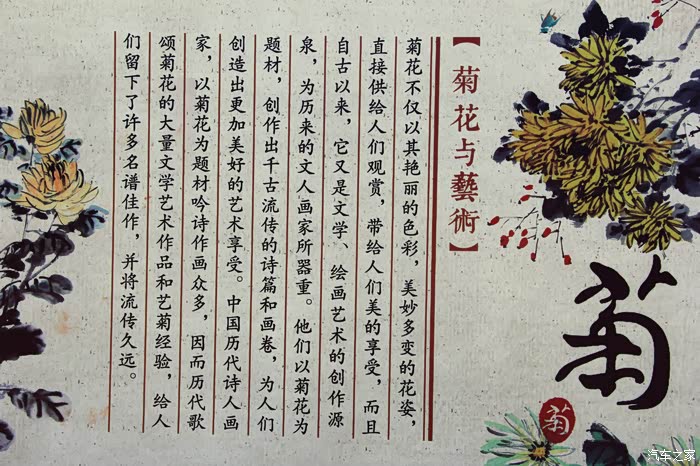 菊
菊
【菊花与藝術】
菊花不仅以其艳丽的色彩，美妙多变的花姿，
直接供给人们观赏，带给人们美的享受，而且
自古以来，它又是文学、绘画艺术的创作源
泉，为历来的文人画家所器重。他们以菊花为
题材，创作出千古流传的诗篇和画卷，为人们
创造出更加美好的艺术享受。中国历代诗人画
家，以菊花为题材吟诗作画众多，因而历代歌
颂菊花的大量文学艺术作品和艺菊经验，给人
们留下了许多名谱佳作，并将流传久远。
汽车之家